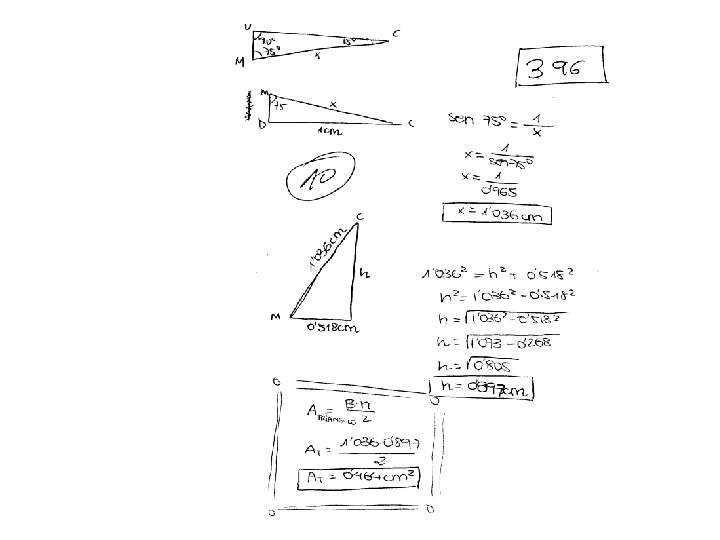 D
90° 15° C
75°
M x
396
M
75 x
D 1cm C
sen 75° = 1/x
x = 1/sen 75°
x = 1/0'965
x = 1'036 cm
10
C
1'036cm
h
M
0'518cm
1'036² = h² + 0'518²
h² = 1'036² - 0'518²
h = √1'036² - 0'518²
h = √1'073 - 0'268
h = √0'805
h = 0'897cm
A TRIÁNGULO = B·h/2
A_T = 1'036·0'897/2
A_T = 0'464 cm²